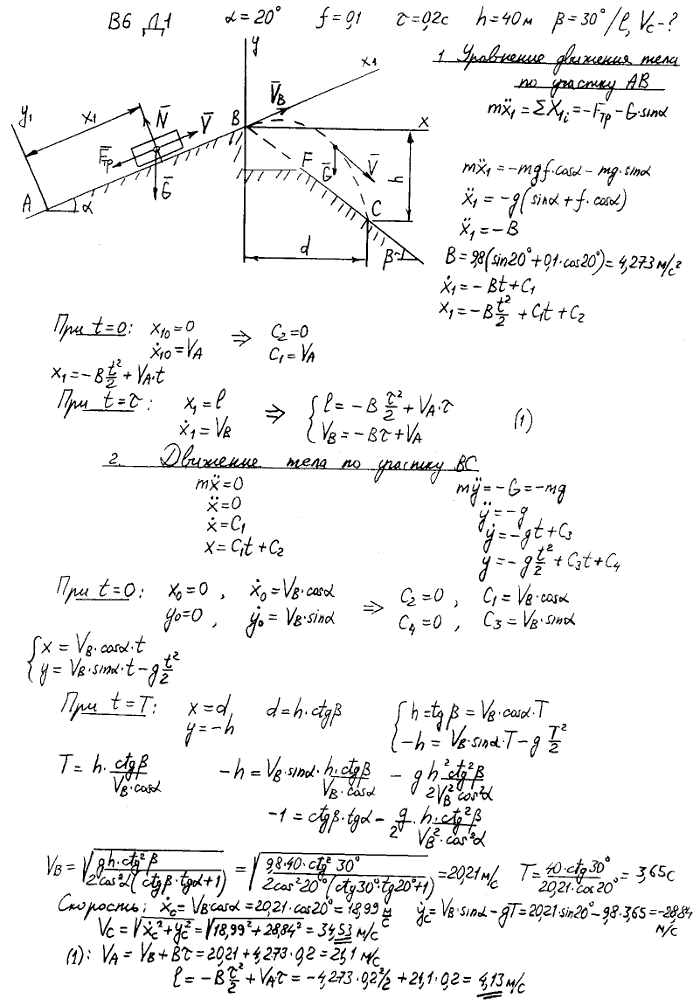 В6 Д1 α=20° f=0,1 τ=0,2с h=40м β=30°/ℓ, Vc-?
y
x₁
V̄_B
y₁
x₁
N̄
V̄
B
x
F̄тр
F
Ḡ
V̄
h
A
α
Ḡ
C
d
β
1. Уравнение движения тела
по участку АВ
mẍ₁=ΣX₁ᵢ=-Fтр-G·sinα
mẍ₁=-mgf·cosα-mg·sinα
ẍ₁=-g(sinα+f·cosα)
ẍ₁=-B
B=9,8(sin20°+0,1·cos20°)=4,273м/с²
ẋ₁=-Bt+C₁
x₁=-B t²/2+C₁t+C₂
При t=0: x₁₀=0 ⇒ C₂=0
ẋ₁₀=V_A C₁=V_A
x₁=-B t²/2+V_A·t
При t=τ: x₁=ℓ ⇒ { ℓ=-B τ²/2+V_A·τ (1)
ẋ₁=V_B V_B=-Bτ+V_A
2. Движение тела по участку ВС
mẍ=0 mÿ=-G=-mg
ẍ=0 ÿ=-g
ẋ=C₁ ẏ=-gt+C₃
x=C₁t+C₂ y=-g t²/2+C₃t+C₄
При t=0: x₀=0, ẋ₀=V_B·cosα ⇒ C₂=0, C₁=V_B·cosα
y₀=0, ẏ₀=V_B·sinα C₄=0, C₃=V_B·sinα
{ x=V_B·cosα·t
y=V_B·sinα·t-g t²/2
При t=T: x=d d=h·ctgβ { h=tgβ=V_B·cosα·T
y=-h -h=V_B·sinα·T-g T²/2
T=h·ctgβ/(V_B·cosα) -h=V_B·sinα·h·ctgβ/(V_B·cosα) -g h²ctg²β/(2V_B²cos²α)
-1=ctgβ·tgα-g/2·h·ctg²β/(V_B²·cos²α)
V_B=√(gh·ctg²β/(2cos²α(ctgβ·tgα+1)))=√(9,8·40·ctg²30°/(2cos²20°(ctg30°tg20°+1)))=20,21м/с T=40·ctg30°/(20,21·cos20°)=3,65с
Скорость: ẋc=V_Bcosα=20,21·cos20°=18,99 м/с ẏc=V_B·sinα-gT=20,21sin20°-9,8·3,65=-28,84
м/с
Vc=√(ẋc²+ẏc²)=√(18,99²+28,84²)=34,53м/с
(1): V_A=V_B+Bτ=20,21+4,273·0,2=21,1м/с
ℓ=-B τ²/2+V_Aτ=-4,273·0,2²/2+21,1·0,2=4,13м/с